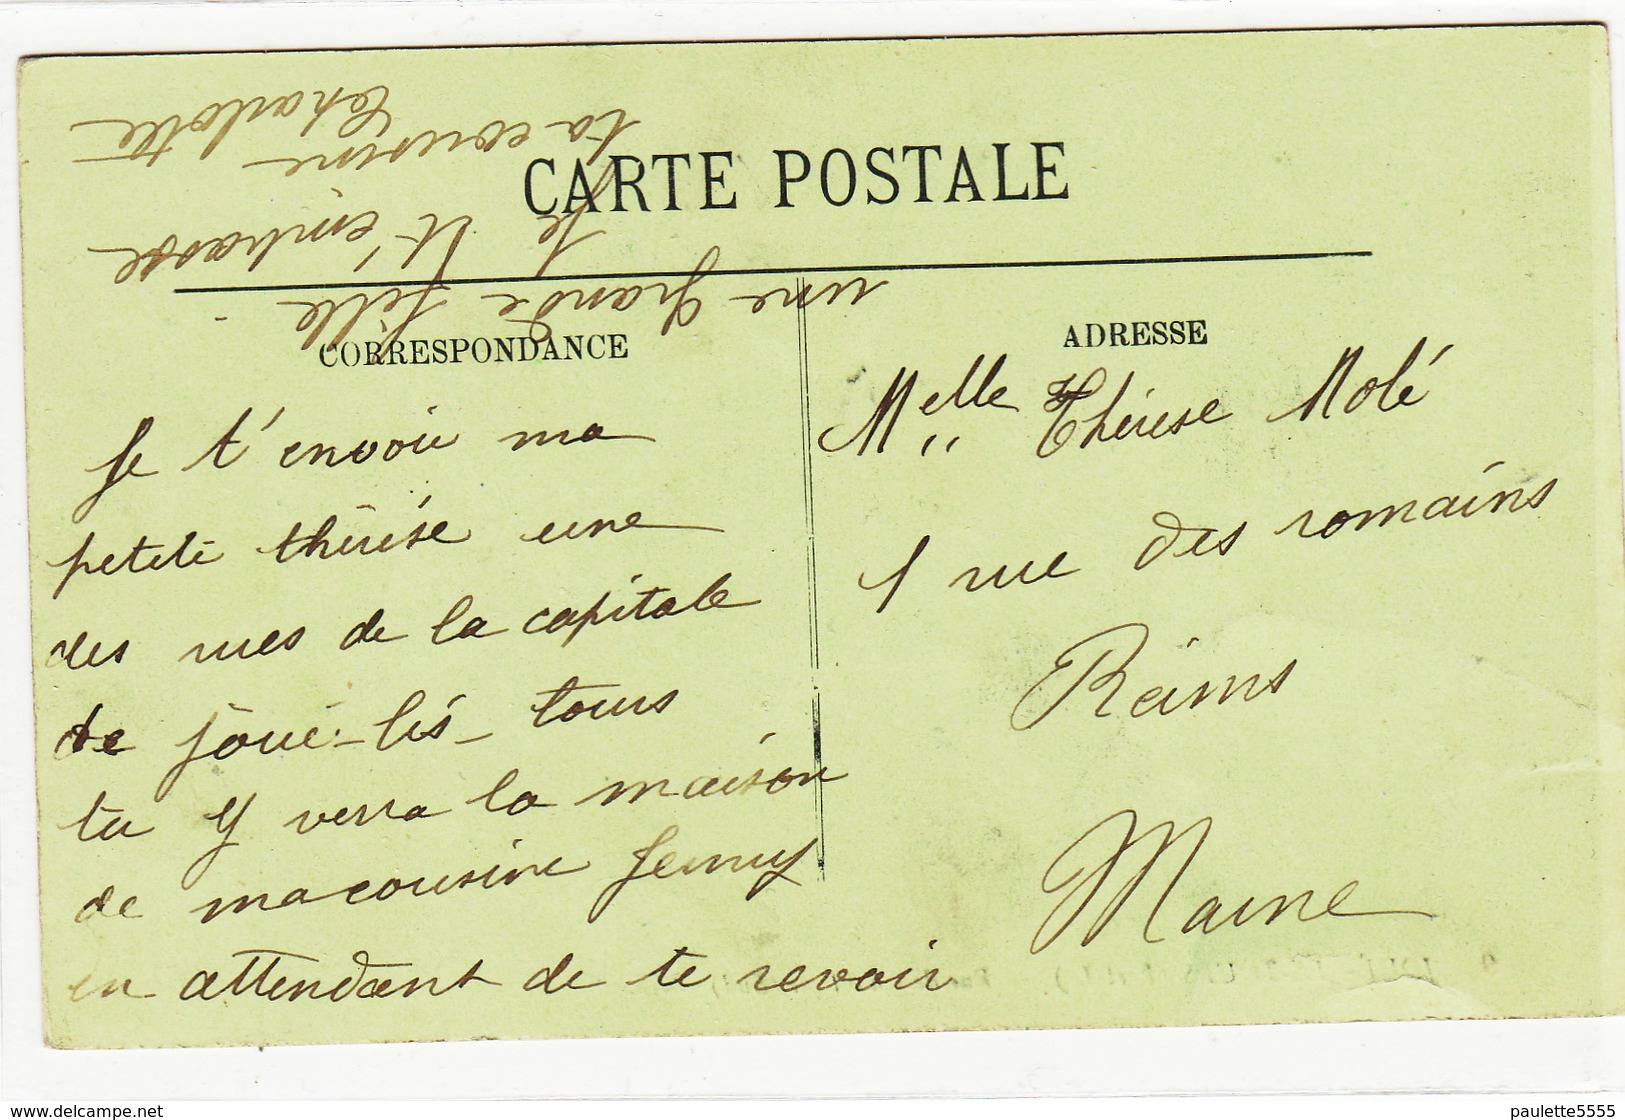 CARTE POSTALE
CORRESPONDANCE
ADRESSE
Je t'envoie ma
petite thérèse une
des rues de la capitale
de joué-lés-tours
tu y verra la maison
de ma cousine Jenny
en attendant de te revoir
une grande fille.
Je t'embrasse
ta cousine
Charlotte
Melle Thérèse Molé
1 rue des romains
Reims
Marne
www.delcampe.net
paulette5555